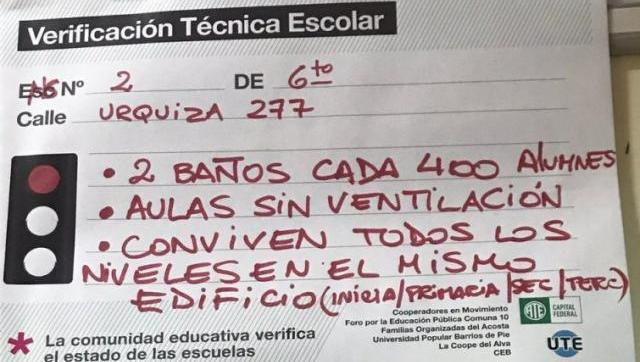 Verificación Técnica Escolar
Nº 2 DE 6to
Calle URQUIZA 277
• 2 BAÑOS CADA 400 ALUMNES
• AULAS SIN VENTILACIÓN
• CONVIVEN TODOS LOS
NIVELES EN EL MISMO
EDIFICIO (INICIA/PRIMARIA/SEC/TERC)
Cooperadores en Movimiento
Foro por la Educación Pública Comuna 10
Familias Organizadas del Acosta
Universidad Popular Barrios de Pie
La Coope del Alva
CEB
ATE CAPITAL FEDERAL
UTE
* La comunidad educativa verifica
el estado de las escuelas